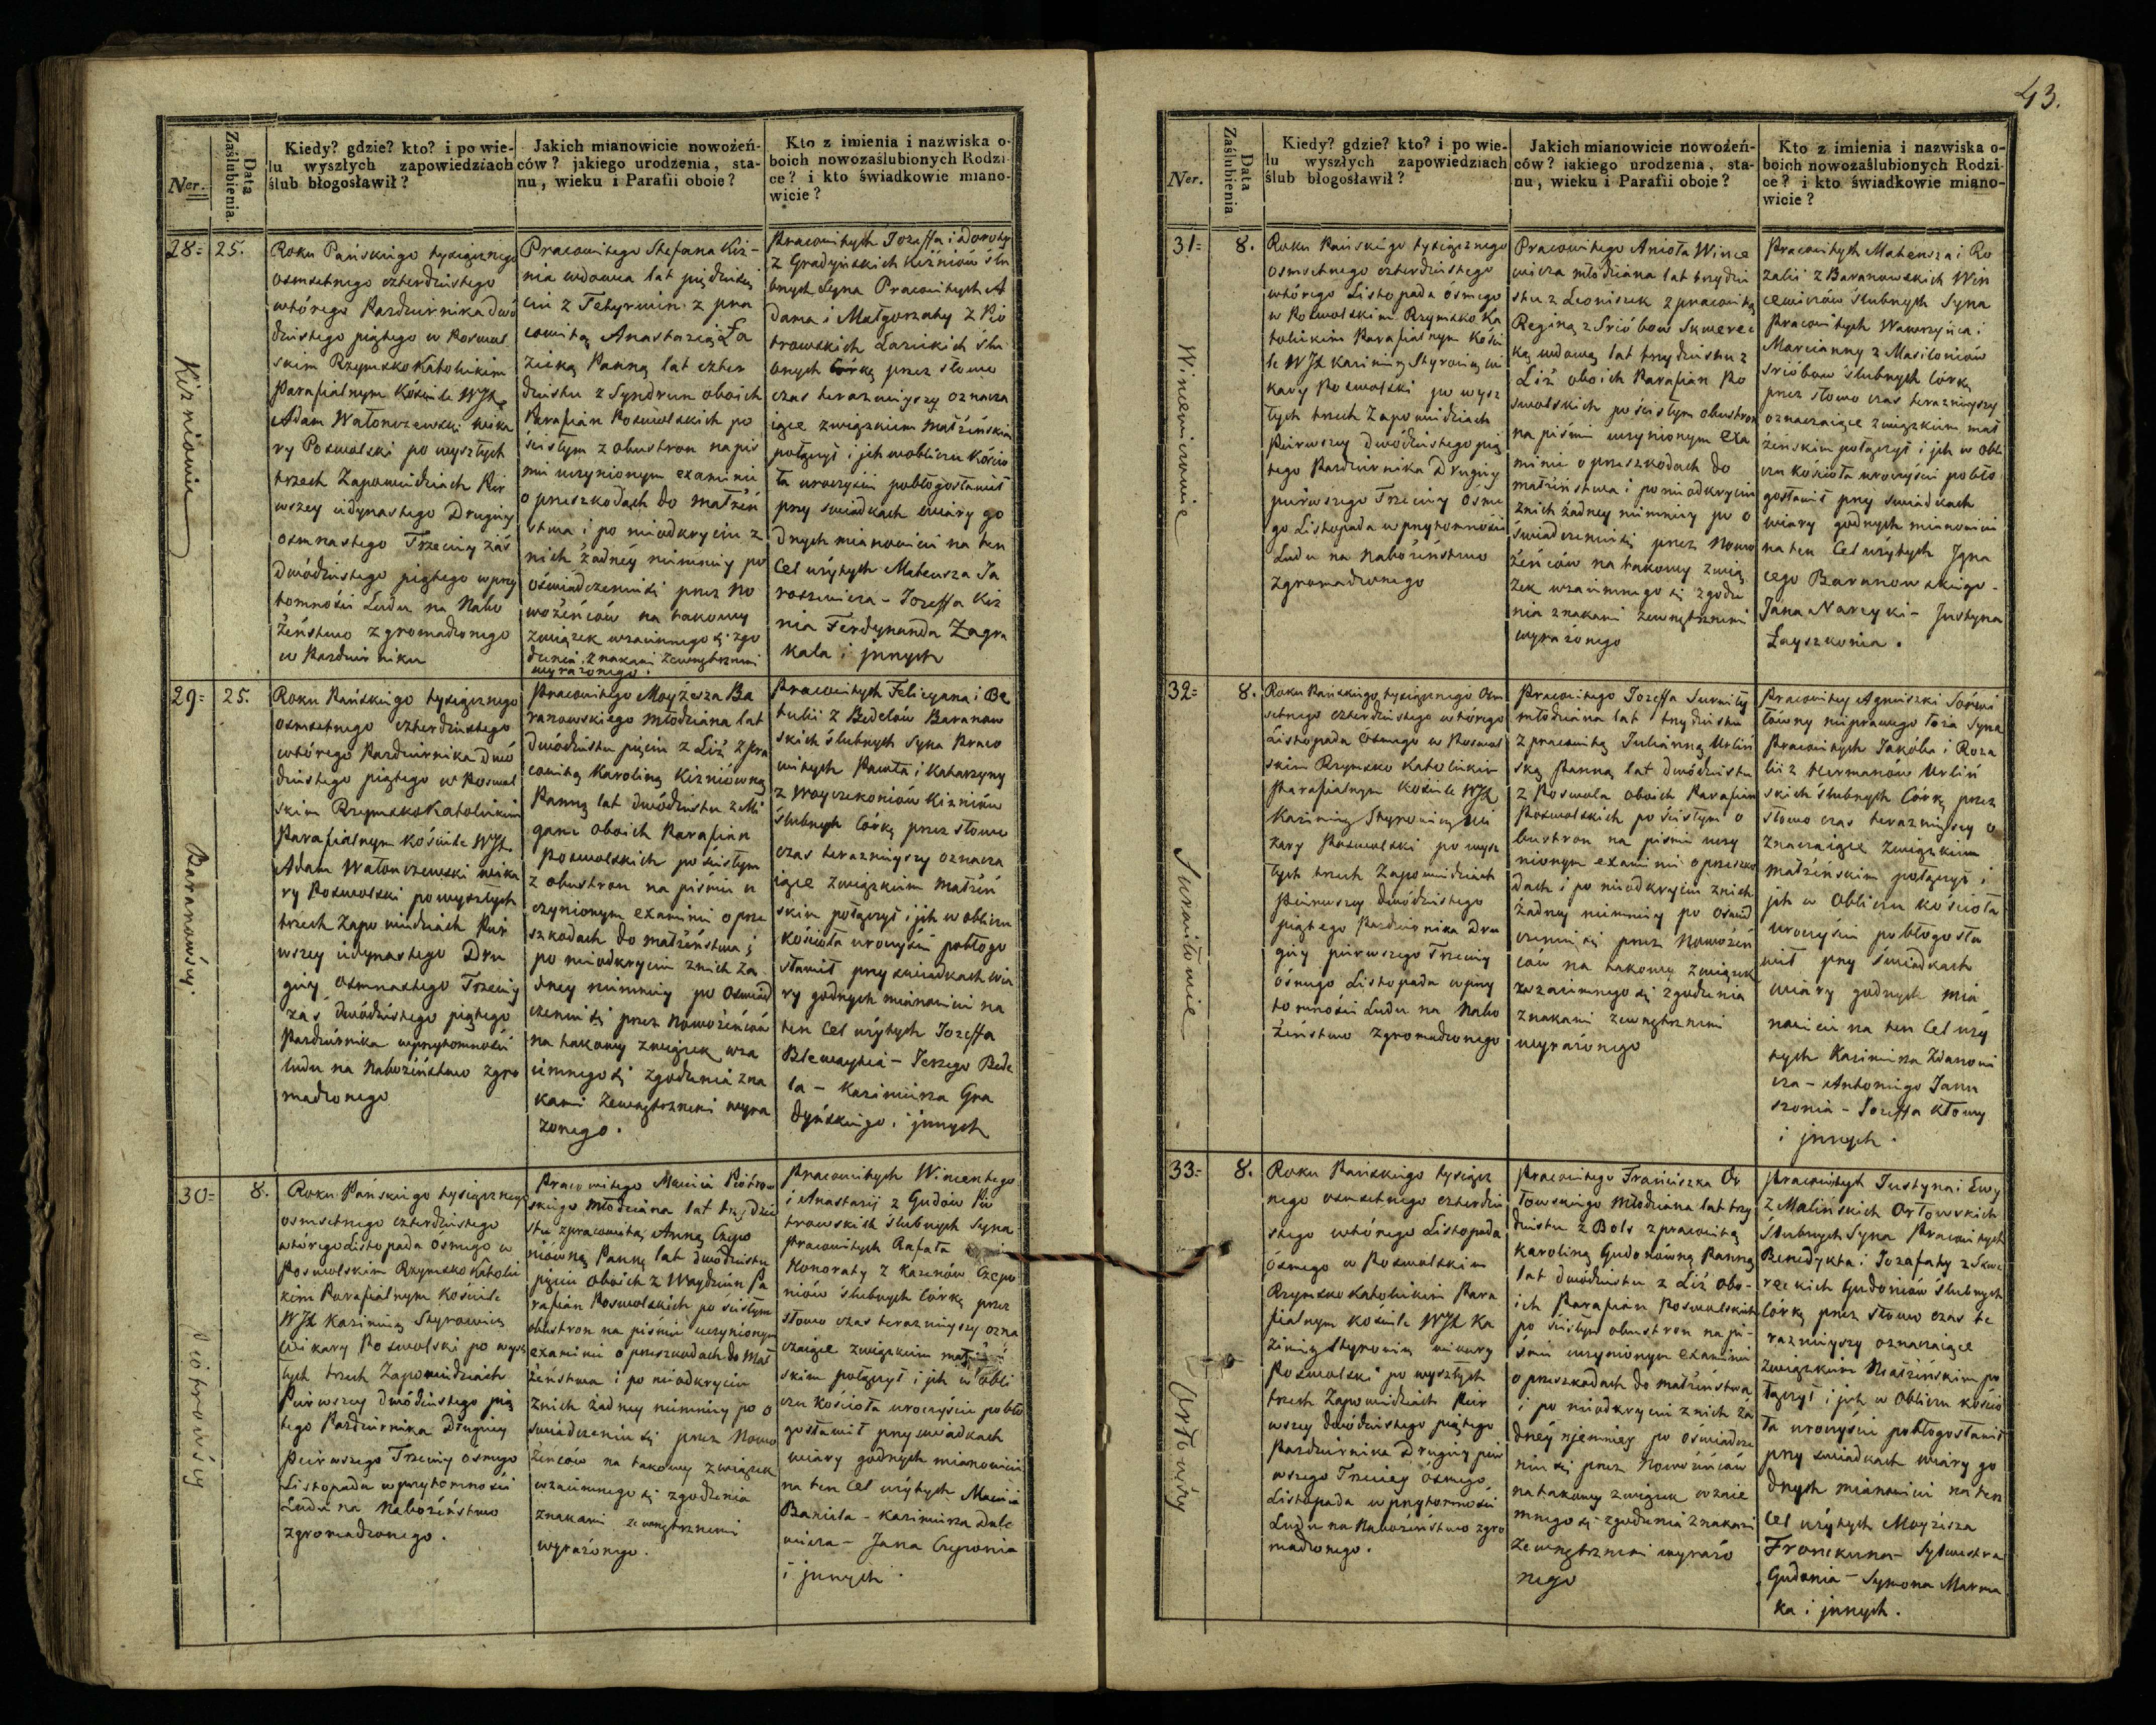 43.
Ner.
Data Zaślubienia.
Kiedy? gdzie? kto? i po wie-
lu wyszłych zapowiedziach
ślub błogosławił?
Jakich mianowicie nowożeń-
ców? jakiego urodzenia, sta-
nu, wieku i Parafii oboie?
Kto z imienia i nazwiska o-
boich nowozaślubionych Rodzi-
ce? i kto świadkowie miano-
wicie?
28=
25.
Kizniowie
Roku Pańskiego tysiącznego
osmsetnego czterdziestego
wtórego Pazdziernika dwó
dziestego piątego w Poswol
skim Rzymsko Katolickim
Parafialnym Kościele WJX
Adam Watonczewski wika
ry Poswolski po wyszłych
trzech Zapowiedziach Pier
wszey iedynastego Drugiey
osmnastego Trzeciey zaś
dwódziestego piątego w przy
tomności Ludu na Nabo
żeństwo zgromadzonego
w Pazdzierniku
Pracowitego Stefana Kiz-
nia wdowca lat pięćdziesię
ciu z Tetyrwin z pra
cowitą Anastazią Ła
zicką Panną lat czter
dziestu z Syndrun oboich
Parafian Poswolskich po
ścisłym z obustron na piś
mie uczynionym examinie
o przeszkodach do małżeń
stwa i po nieodkryciu z
nich żadney niemniey po
oświadczeniu się przez No
wożeńców na takowy
związek wzaiemnego się zgo
dzenia znakami zewnętrznemi
wyrażonego.
Pracowitych Jozeffa i Doroty
z Gradyńskich Kizniow ślu
bnych Syna Pracowitych A
dama i Małgorzaty z Pio
trowskich Łazickich ślu
bnych Córką przez słowo
czas teraznieyszy oznacza
iące związkiem Małżeńskim
połączył i ich w obliczu Kościo
ła uroczyście pobłogosławił
przy swiadkach wiary go
dnych mianowicie na ten
Cel użytych Mateusza Ja
rosewicza - Jozeffa Kiz
nia Ferdynanda Zagra
kala i jnnych
29=
25.
Baranowscy.
Roku Pańskiego tysiącznego
osmsetnego czterdziestego
wtórego Pazdziernika dwó
dziestego piątego w Poswol
skim Rzymsko Katolickim
Parafialnym Kościele WJX
Adam Watonczewski wika
ry Poswolski po wyszłych
trzech Zapowiedziach Pier
wszey iedynastego Dru
giey osmnastego Trzeciey
zaś dwódziestego piątego
Pazdziernika w przytomności
ludu na Nabożeństwo zgro
madzonego
Pracowitego Moyżesza Ba
ranowskiego młodziana lat
dwódziestu pięciu z Liż z pra
cowitą Karoliną Kizniówną
Panną lat dwódziestu z Mi
gan oboich Parafian
Poswolskich po ścisłym
z obustron na piśmie u
czynionym examinie o prze
szkodach do małżeństwa i
po nieodkryciu znich ża
dney niemniey po oswiad
czeniu się przez Nowożeńców
na takowy związek wza
iemnego się zgodzenia zna
kami zewnętrznemi wyra
żonego.
Pracowitych Felicyana i Be
tulii z Bedelów Baranow
skich ślubnych Syna Praco
witych Pawła i Katarzyny
z Woyczekoniów Kizniów
ślubnych Córką przez słowo
czas teraznieyszy oznacza
iące związkiem Małżeń
skim połączył i ich w obliczu
Kościoła uroczyście pobłogo
sławił przy swiadkach wia
ry godnych mianowicie na
ten Cel użytych Jozeffa
Jerzego Bede
la - Kazimierza Gra
dyńskiego i jnnych
30=
8.
Piotrowscy
Roku Pańskiego tysiącznego
osmsetnego czterdziestego
wtórego Listopada ósmego w
Poswolskim Rzymsko Katolic
kim Parafialnym Kościele
WJX Kazimierz Styrowicz
Wikary Poswolski po wysz
łych trzech Zapowiedziach
Pierwszey dwódziestego pią
tego Pazdziernika Drugiey
Pierwszego Trzeciey osmego
Listopada w przytomności
Ludu na Nabożeństwo
zgromadzonego.
Pracowitego Macieia Piotrow
skiego Młodziana lat trzydzie
stu z pracowitą Anną Czepo
niówną Panną lat dwódziestu
pięciu oboich z Woydziun Pa
rafian Poswolskich po ścisłym
obustron na piśmie uczynionym
examinie o przeszkodach do Mał
żeństwa i po nieodkryciu
znich żadney niemniey po o
swiadczeniu się przez Nowo
żeńców na takowy związek
wzaiemnego się zgodzenia
znakami zewnętrznemi
wyrażonego.
Pracowitych Wincentego
i Anastazij z Gudow Pio
trowskich ślubnych Syna
Pracowitych Rafała
Honoraty z Kazenów Czepo
niów ślubnych Córką przez
słowo czas teraznieyszy ozna
czaiące związkiem małżeń
skim połączył i ich w obli
czu Kościoła uroczyście pobło
gosławił przy swiadkach
wiary godnych mianowicie
na ten Cel użytych Macieia
Baniula - Kazimierza Dule
wicza - Jana Czeponia
i jnnych.
Ner.
Data Zaślubienia
Kiedy? gdzie? kto? i po wie-
lu wyszłych zapowiedziach
ślub błogosławił?
Jakich mianowicie nowożeń-
ców? iakiego urodzenia, sta-
nu, wieku i Parafii oboie?
Kto z imienia i nazwiska o-
boich nowozaślubionych Rodzi-
ce? i kto świadkowie miano-
wicie?
31=
8.
Wincewiczowie
Roku Pańskiego tysiącznego
osmsetnego czterdziestego
wtórego Listopada ósmego
w Poswolskim Rzymsko Ka
tolickim Parafialnym Kości
le WJX Kazimierz Styrowicz wi
kary Poswolski po wysz
łych trzech Zapowiedziach
Pierwszey dwódziestego pią
tego Pazdziernika Drugiey
pierwszego Trzeciey Osme
go Listopada w przytomności
Ludu na Nabożeństwo
zgromadzonego
Pracowitego Anioła Wince
wicza młodziana lat trzydzie
stu z Leoniszek z pracowitą
Reginą z Sriobow Skwerec
ką wdową lat trzydziestu z
Liż oboich Parafian Po
swolskich po ścisłym obustron
na piśmie uczynionym exa
minie o przeszkodach do
małżeństwa i po nieodkryciu
znich żadney niemniey po o
świadczeniu się przez Nowo
żeńców na takowy zwią
zek wzaiemnego się zgodze
nia znakami zewnętrznemi
wyrażonego
Pracowitych Mateusza i Ro
zalii z Baranowskich Win
cewiczów ślubnych Syna
Pracowitych Wawrzyńca i
Marcianny z Masiloniów
Sriobow ślubnych Córką
przez słowo czas teraznieyszy
oznaczaiące związkiem mał
żeńskim połączył i ich w obli
czu Kościoła uroczyście pobło
gosławił przy swiadkach
wiary godnych mianowicie
na ten Cel użytych Igna
cego Baranowskiego -
Jana Narcyki - Justyna
Łayszkonia.
32=
8.
Surwiłowie
Roku Pańskiego tysiącznego Osm
setnego czterdziestego wtórego
Listopada Osmego w Poswol
skim Rzymsko Katolickim
Parafialnym Kościele WJX
Kazimierz Styrowicz Wi
kary Poswolski po wysz
łych trzech Zapowiedziach
Pierwszey dwódziestego
piątego Pazdziernika Dru
giey pierwszego Trzeciey
ósmego Listopada w przy
tomności Ludu na Nabo
żeństwo zgromadzonego
Pracowitego Jozeffa Surwiły
młodziana lat trzydziestu
z pracowitą Julianną Urliń
ską Panną lat dwódziestu
z Poswola oboich Parafian
Poswolskich po ścisłym o
bustron na piśmie uczy
nionym examinie o przeszko
dach i po nieodkryciu znich
żadney niemniey po oswiad
czeniu się przez Nowożeń
ców na takowy związek
wzaiemnego się zgodzenia
znakami zewnętrznemi
wyrażonego
Pracowitey Agnieszki Surwi
łówny nieprawego łoża Syna
Pracowitych Jakóba i Roza
lii z Hermanów Urliń
skich ślubnych Córką przez
słowo czas teraznieyszy o
znaczaiące związkiem
małżeńskim połączył i
ich w Obliczu Kościoła
uroczyście pobłogosła
wił przy świadkach
wiary godnych mia
nowicie na ten Cel uży
tych Kazimierza Zdanowi
cza - Antoniego Janu
szonia - Jozeffa Kłowy
i jnnych.
33=
8.
Orłowscy
Roku Pańskiego tysiącz
nego osmsetnego czterdzie
stego wtórego Listopada
ósmego w Poswolskim
Rzymsko Katolickim Para
fialnym Kościele WJX Ka
zimierz Styrowicz wikary
Poswolski po wyszłych
trzech Zapowiedziach Pier
wszey dwódziestego piątego
Pazdziernika Drugiey pier
wszego Trzeciey ósmego
Listopada w przytomności
Ludu na Nabożeństwo zgro
madzonego.
Pracowitego Franciszka Or
łowskiego Młodziana lat trzy
dziestu z Bols z pracowitą
Karoliną Gudoniówną Panną
lat dwódziestu z Liż obo-
ich Parafian Poswolskich
po ścisłym obustron na pi-
śmie uczynionym examinie
o przeszkodach do małżeństwa
i po nieodkryciu znich ża
dney niemniey po oświadcze
niu się przez Nowożeńców
na takowy związek wzaie
mnego się zgodzenia znakami
zewnętrznemi wyrażo
nego
Pracowitych Justyna i Ewy
z Malińskich Orłowskich
Ślubnych Syna Pracowitych
Benedykta i Jozafaty z Skwe
reckich Gudoniów ślubnych
Córką przez słowo czas te
raznieyszy oznaczaiące
związkiem Małżeńskim po
łączył i ich w Obliczu Kościo
ła uroczyście pobłogosławił
przy swiadkach wiary go
dnych mianowicie na ten
Cel użytych Moyżesza
Sylwestra
Gudonia - Symona Marma
ka i jnnych.